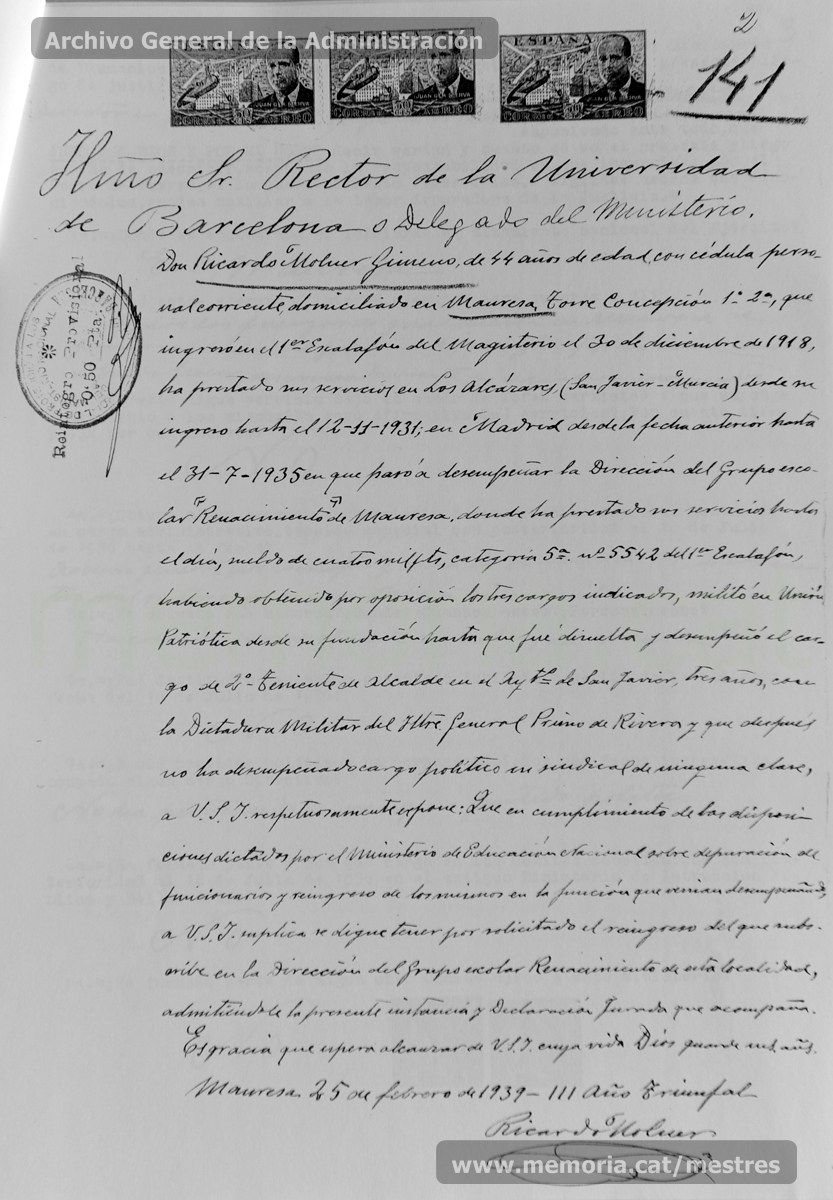 Archivo General de la Administración
ESPAÑA ESPAÑA ESPAÑA
JUAN DE LA CIERVA JUAN DE LA CIERVA JUAN DE LA CIERVA
CORREO AEREO CORREO AEREO CORREO AEREO
2
141
Iltmo Sr. Rector de la Universidad
de Barcelona o Delegado del Ministerio.
Don Ricardo Moluer Gimeno, de 44 años de edad, con cédula perso-
nal corriente, domiciliado en Manresa, Torre Concepción 1º 2ª, que
ingresó en el 1er Escalafón del Magisterio el 30 de diciembre de 1918,
ha prestado sus servicios en Los Alcázares, (San Javier - Murcia) desde su
ingreso hasta el 12-11-1931; en Madrid desde la fecha anterior hasta
el 31-7-1935 en que pasó a desempeñar la Dirección del Grupo esco-
lar "Renacimiento" de Manresa, donde ha prestado sus servicios hasta
el día, sueldo de cuatro mil pts, categoria 5ª. nº 5542 del 1er Escalafón,
habiendo obtenido por oposición los tres cargos indicados, militó en Unión
Patriótica desde su fundación hasta que fué disuelta y desempeñó el car-
go de 2º Teniente de Alcalde en el Aytº de San Javier, tres años, con
la Dictadura Militar del Iltre. General Primo de Rivera y que después
no ha desempeñado cargo político ni sindical de ninguna clase,
a V.S.I. respetuosamente expone: Que en cumplimiento de las disposi-
ciones dictadas por el Ministerio de Educación Nacional sobre depuración de
funcionarios y reingreso de los mismos en la función que venian desempeñando,
a V.S.I. suplica se digne tener por solicitado el reingreso del que subs-
cribe en la Dirección del Grupo escolar Renacimiento de esta localidad,
admitiendole la presente instancia y Declaración Jurada que acompaña.
Es gracia que espera alcanzar de V.S.I. cuya vida Dios guarde ms. añs.
Manresa 25 de febrero de 1939 - III Año Triunfal
Ricardo Moluer
Reintegro Provisional
0'50 Pta.
www.memoria.cat/mestres